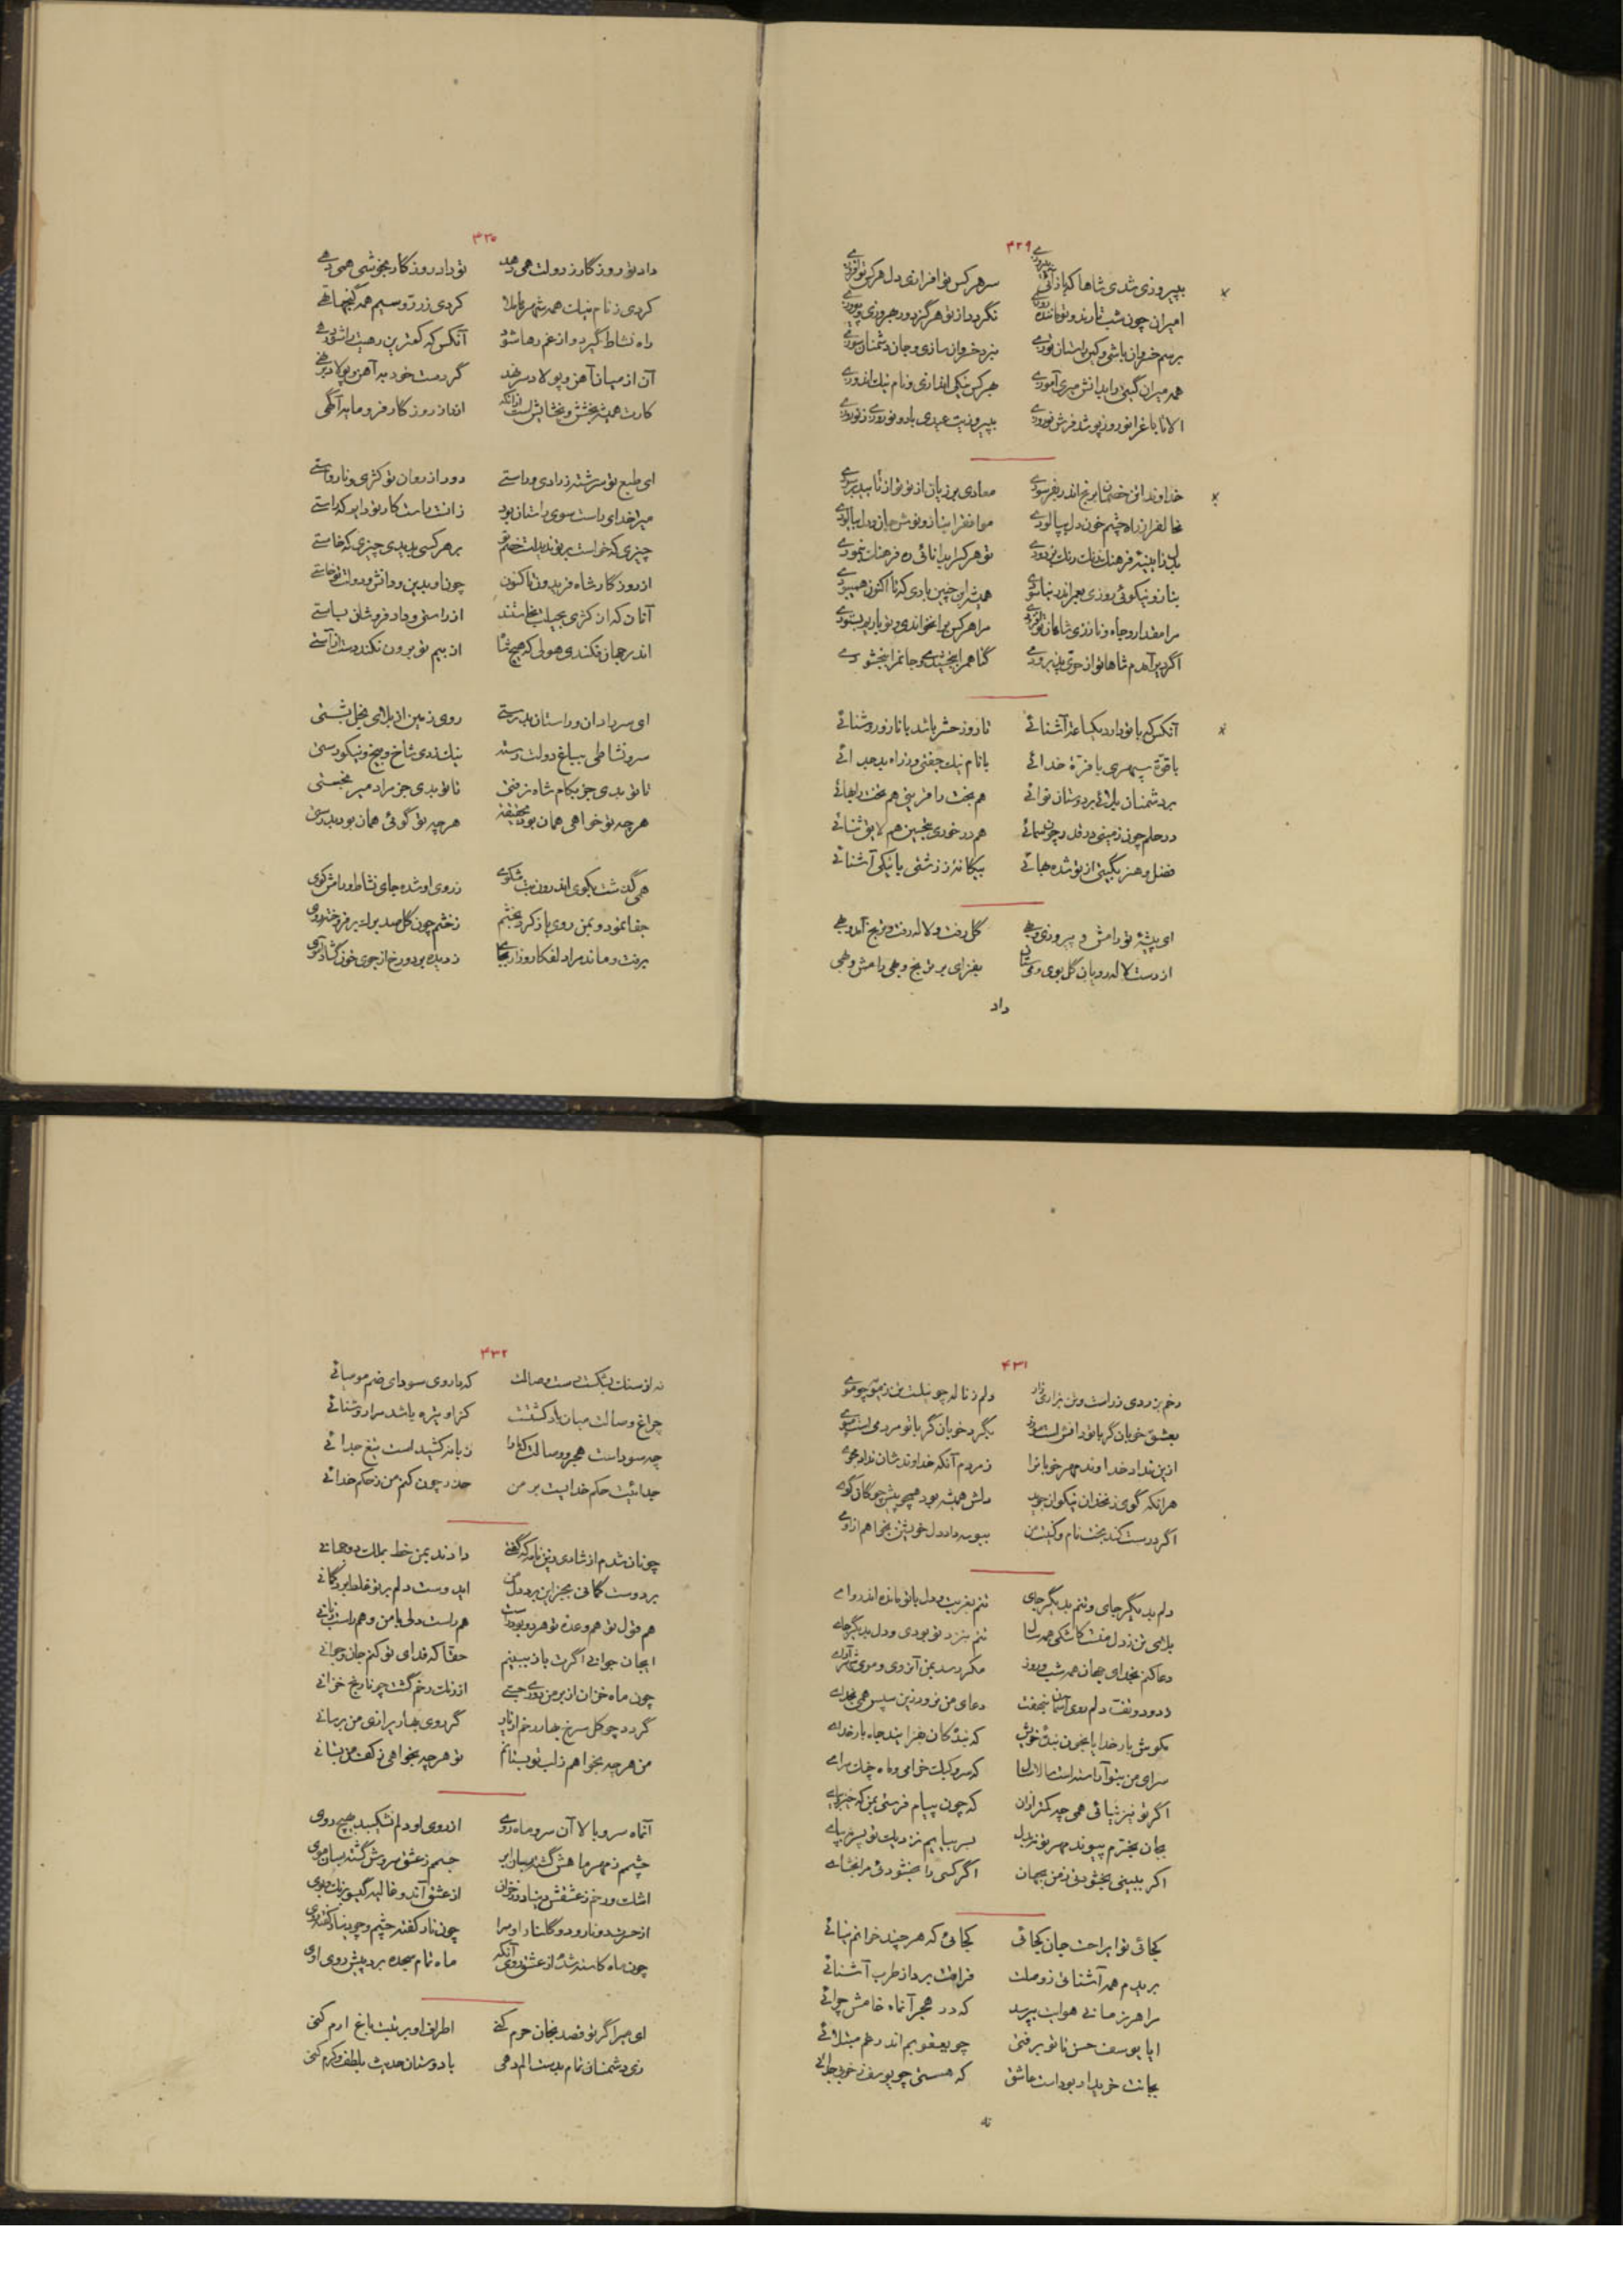 ۴۲۹
بپیروزی شدی شاها که باز آئی به پیروزی سر هر کس تو افرازی دل هر کس تو افروزی
امیران چون شب تارند و تو تابنده روزی نگردد از تو هرگز دور بهروزی و پیروزی
برسم خسروان باشی و کین راستان توزی
همه میران گیتی را بدانش میری آموزی بهر کس نیکی اندازی و نام نیک اندوزی
الا تا باغ را نوروز پوشد فرش نوروزی بپیروزیت عیدی باد و نوروزی ز نوروزی
خداوندا تن خصمان برنج اندر بفرسودی معادی بر زیان از تو تو از تایید بر سودی
مخالف را ز راه چشم خون دل بپالودی موافق را بناز و نوش جان و دل بیالودی
تو هر کس را بدانائی ره فرهنگ بنمودی
بناز و نیکوئی روزی بعمر اندر نیاسودی همیشه این چنین بادی که تا اکنون همی بودی
مرا مقدار و جاه و ناز زی شاهان تو افزودی مرا هر کس برا نخواندی و تو باز بستودی
اگر دیر آمدم شاها تو از حق بدین زودی گناهم را ببخشیدی و جانم را ببخشودی
آنکس که با تو دارد یکساعت آشنائی تا روز حشر باشد با ناز و روشنائی
با قوة سپهری با فرّة خدائی با نام نیک جفتی وز راه بد جدائی
بر دشمنان بلائی بر دوستان نوائی هم بخت را فرینی هم تخت را بهائی
در حلم چون زمینی در قدر چون سمائی هم در خور بهشتی هم لایق ثنائی
فضل و هنر بگیتی از تو شده بهائی بیگانه ز زشتی با نیکی آشنائی
ای پیشهٔ تو رامش و پیروزی و بهی گل رفت و لاله رفت و ترنج آمد و بهی
از دست لاله رویان گل بوی و می ستان بفزای بر ترنج و بهی رامش و بهی
داد
۴۳۰
داد تو روزگار ز دولت همی دهد تو داد روزگار بخوشی همی دهی
کردی ز نام نیک همه شهرها ملا کردی ز زر و سیم همه گنجها تهی
راه نشاط گیرد و از غم رها شود آنکس که کمترین رهیت را شود رهی
آن از میان آهن و پولاد سر نهد گر دست خود به آهن و پولاد برنهی
کارت همیشه بخشش و بخشایش است از آنکه از روزگار فرومایه آگهی
ای طبع تو سرشته ز رادی و راستی دور از روان تو کژی و ناراستی
میر خدای راست سوی راستان بود زانست راست کار تو دایم که راستی
چیزی که خواست بر تو بدید است خصم تو بر هر کسی پدیدی چیزی که خاستی
از روزگار شاه فریدون تا کنون چون او بدین و دانش و دولت نخاستی
آنان که از کژی بحیلت بخاستند از راستی و داد فروشان بساستی
اندر جهان فکندی هولی که هیچ شا از بیم تو برون نکند دست از آستی
ای سر رادان و راستان بدرستی روی زمین از بلای بخل بشستی
سرو نشاطی بباغ دولت رسته نیک زدی شاخ و بیخ و نیکو رستی
تا تو بدی جز بکام شاه نرفتی تا تو بدی جز مراد میر نجستی
هر چه تو خواهی همان بود بحقیقت هر چه تو گوئی همان بود بدرستی
همی گذشت بکوی اندرون بت مشکوی ز روی او شده جای نشاط و رامش کوی
جفا نمود و بمن روی باز کرد بخشم ز خشم چون گل صد برگ بر فروخته روی
برفت و ماند مرا دلفکار و زار بجای ز دیده بر دو رخ از جوی خون گشاد آموی
۴۳۱
رخم بزردی زر است و تن بزاری زار دلم ز ناله چو نیلست و تن ز مویه چو موی
بعشق خوبان گر با تو رامش است مموی بگرد خوبان گر با تو مردمی است مپوی
ازین نداد خداوند مهر خوبانرا ز مردم آنکه خداوندشان نداد مجوی
هرانکه گوی زنخدان نیکوان جوید دلش همیشه بود همچو پیش چوگان گوی
اگر درست کند بخت نام و کنیت من ببوسه داد دل خویشتن بخواهم ازوی
دلم بدیگر جای و تنم بدیگر جای تنم بغربت و دل با تو مانده اندر وای
بلای تن ز دل است کاشکی همه سال تنم بنزد تو بودی و دل بدیگر جای
دعا کنم بخدای جهان همه شب و روز مگر رسد بمن آن روی و موی شاه آرای
ز دود و تف دلم روی آسمان بنهفت دعای من نرود زین سپس همی بخدای
مکوش بار خدایا بخون بندهٔ خویش که بندگان بفزایند جاه بار خدای
سرای من بتو آراسته است سالاسال که سرو کبک خرامی و ماه چنگ سرای
اگر تو نیز نیائی همی چه کمتر ازان که چون پیام فرستی بمن که خیز بیای
بجان بخرم پیوند مهر تو نه بدل بسر بیایم نزدیک تو بسر نه بپای
اگر ببینی بخشودنی ز من بجهان اگر کسی را بخشودئی مرا بخشای
کجائی تو ای راحت جان کجائی کجائی که هر چند خوانم نیائی
بریدم همه آشنائی ز وصلت فراقت برد از طرب آشنائی
مرا هر زمانی هوایت بپرسد که در هجر آنماه خامش چرائی
ایا یوسف حسن تا تو برفتی چو یعقوبم اندر غم مبتلائی
بجانت خریدار بود است عاشق که هستی چو یوسف بخوبی بجائی
نه
۴۳۲
نه از سنگ بشکست دست وصالت که با روی سودای صنم مومیائی
چراغ وصالت میان باد کشتست کزاو تیره باشد مرا روشنائی
چه سود است هجر و وصالت که ما را زبانه کشید است تیغ جدائی
جدائیت حکم خدایست بر من حذر چون کنم من ز حکم خدائی
چونان شدم از شادی زین نامه که گفتی دادند بمن خط بملک دو جهانی
بر دوست گمانی بجز این برد دل من ای دوست دلم بر تو غلط برد گمانی
هم قول تو هم وعدهٔ تو هر دو بود راست هم راست دلی با من و هم راست زبانی
ایجان جوانی اگرت باز ببینم حقا که فدای تو کنم جان و جوانی
چون ماه خزان از بر من دوری جستی از رنگ رخم گشت چو نارنج خزانی
گردد چو گل سرخ بهار رخم از ناز گر روی بهار برازی من برسانی
من هر چه بخواهم ز لب تو بستانم تو هر چه بخواهی ز کف من بستانی
آنماه سرو بالا آن سرو ماه روی از روی او دلم نشکیبد بهیچ روی
چشم ز مهر ماهش گشته بسان ابر جسمم ز عشق مروش گشته بسان موی
اشک و رخم ز عشقش
از حسرت دو نار و دو گلنار او مرا چون نار کفته چشم و چو دینار گفته روی
چون ماه کاسته شده از عشق روی آنکه ماه تمام سجده برد پیش روی اوی
ای میر اگر تو قصد بنجان خرم کنی اطراف او برتبت باغ ارم کنی
زی دشمنان تمام بدست الم دهی با دوستان حدیث بلطف و کرم کنی